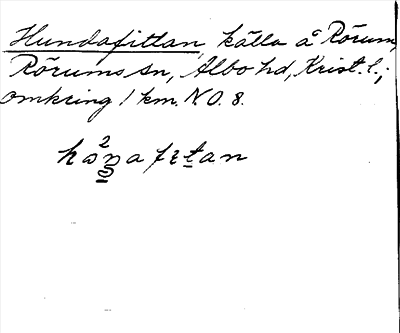 Hundafittan, källa å Rörum,
Rörums sn, Albo hd, Krist. l.;
omkring 1 km. N O. 8.